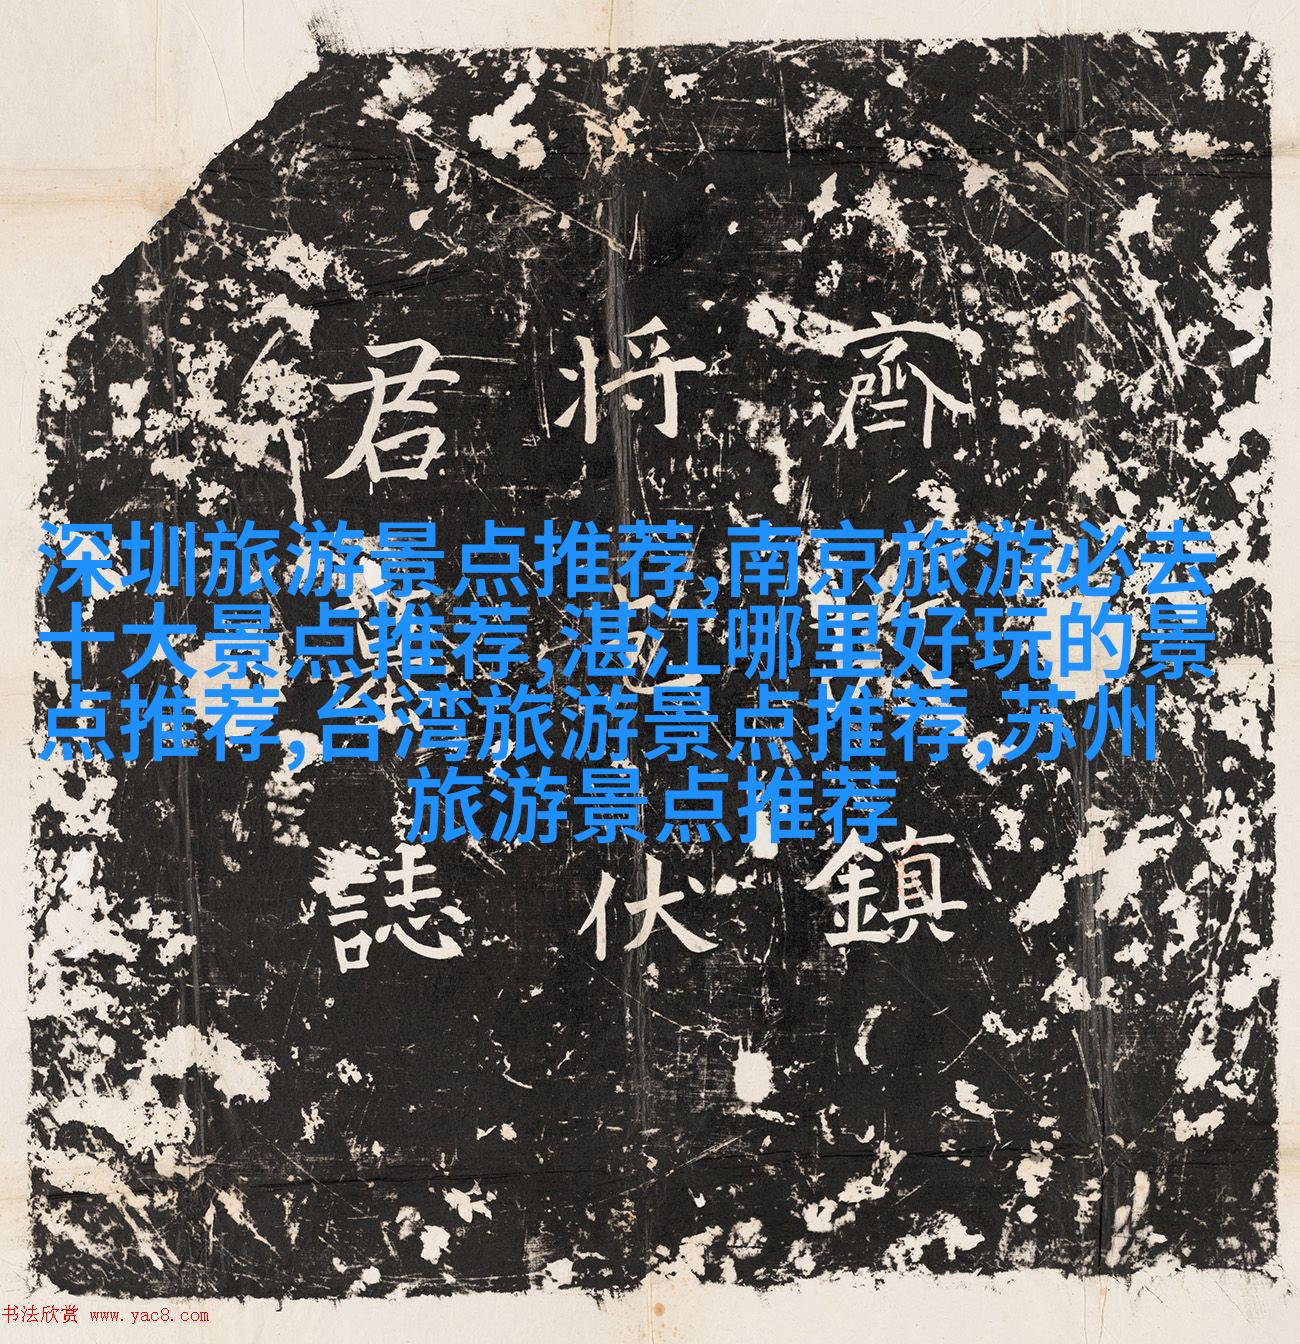 齊鎮
将伏
君誌
深圳旅游景点推荐,南京旅游必去
十大景点推荐,湛江哪里好玩的景
点推荐,台湾旅游景点推荐,苏州
旅游景点推荐
书法欣赏 www.yac8.com